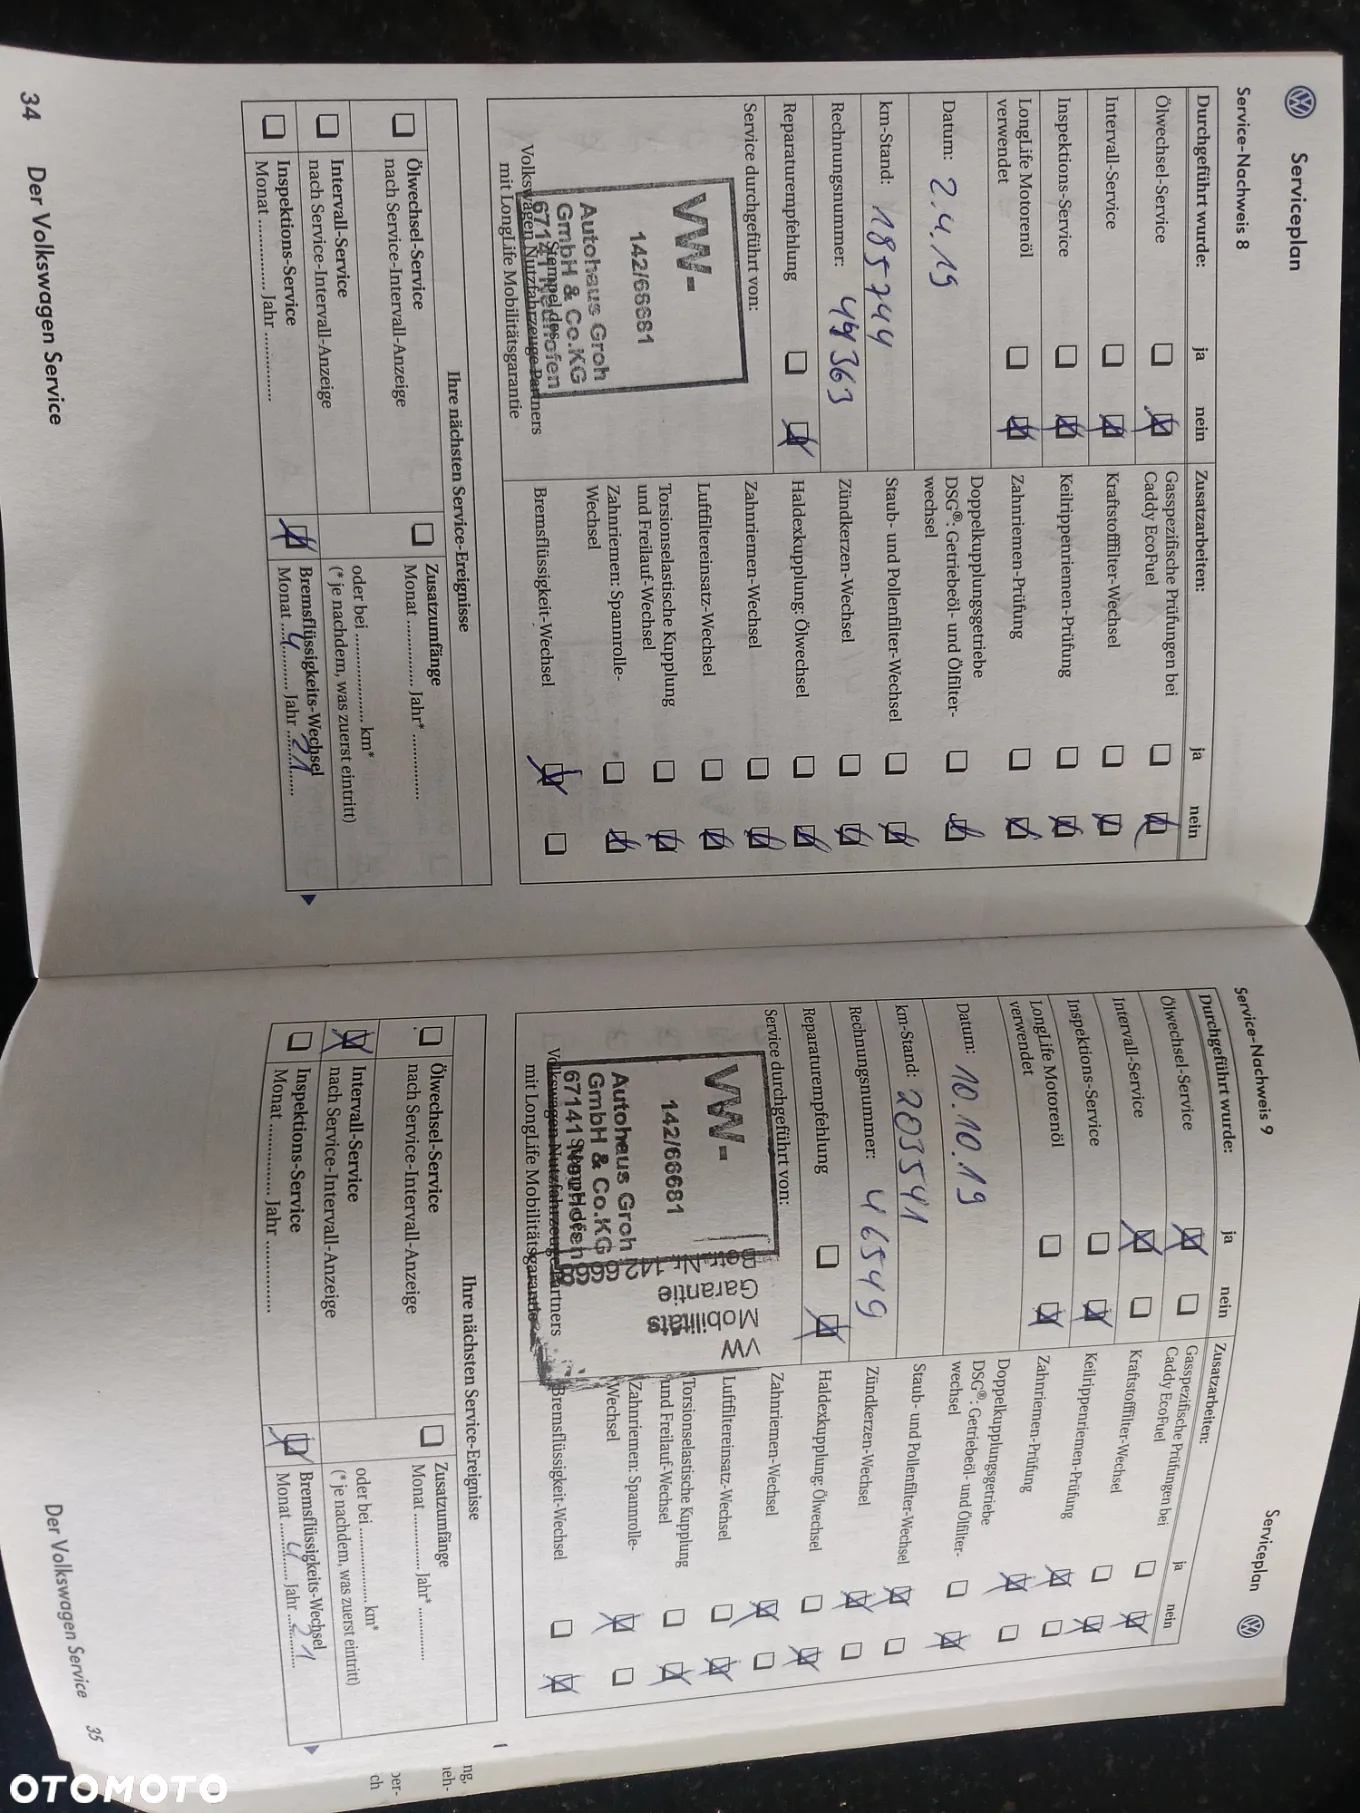 Serviceplan
Service-Nachweis 8
Durchgeführt wurde: ja nein
Ölwechsel-Service
Intervall-Service
Inspektions-Service
LongLife Motorenöl
verwendet
Datum: 2.4.19
km-Stand: 185744
Rechnungsnummer: 44363
Reparaturempfehlung
Service durchgeführt von:
VW-
142/66681
Autohaus Groh
GmbH & Co.KG
67141 Neuhofen
Stempel des
Volkswagen Nutzfahrzeuge Partners
mit LongLife Mobilitätsgarantie
Zusatzarbeiten: ja nein
Gasspezifische Prüfungen bei
Caddy EcoFuel
Kraftstofffilter-Wechsel
Keilrippenriemen-Prüfung
Zahnriemen-Prüfung
Doppelkupplungsgetriebe
DSG®: Getriebeöl- und Ölfilter-
wechsel
Staub- und Pollenfilter-Wechsel
Zündkerzen-Wechsel
Haldexkupplung: Ölwechsel
Zahnriemen-Wechsel
Luftfiltereinsatz-Wechsel
Torsionselastische Kupplung
und Freilauf-Wechsel
Zahnriemen: Spannrolle-
Wechsel
Bremsflüssigkeit-Wechsel
Ihre nächsten Service-Ereignisse
Ölwechsel-Service
nach Service-Intervall-Anzeige
Intervall-Service
nach Service-Intervall-Anzeige
Inspektions-Service
Monat ............... Jahr ...............
Zusatzumfänge
Monat ............... Jahr* ...............
oder bei ............... km*
(* je nachdem, was zuerst eintritt)
Bremsflüssigkeits-Wechsel
Monat 4 Jahr 21
34 Der Volkswagen Service
Serviceplan
Service-Nachweis 9
Durchgeführt wurde: ja nein
Ölwechsel-Service
Intervall-Service
Inspektions-Service
LongLife Motorenöl
verwendet
Datum: 10.10.19
km-Stand: 203541
Rechnungsnummer: 46549
Reparaturempfehlung
Service durchgeführt von:
VW-
142/66681
Autohaus Groh
GmbH & Co.KG
67141 Neuhofen
Stempel des
Volkswagen Nutzfahrzeuge Partners
mit LongLife Mobilitätsgarantie
VW
Mobilitäts
Garantie
Betr.Nr. 142 66681
Zusatzarbeiten: ja nein
Gasspezifische Prüfungen bei
Caddy EcoFuel
Kraftstofffilter-Wechsel
Keilrippenriemen-Prüfung
Zahnriemen-Prüfung
Doppelkupplungsgetriebe
DSG®: Getriebeöl- und Ölfilter-
wechsel
Staub- und Pollenfilter-Wechsel
Zündkerzen-Wechsel
Haldexkupplung: Ölwechsel
Zahnriemen-Wechsel
Luftfiltereinsatz-Wechsel
Torsionselastische Kupplung
und Freilauf-Wechsel
Zahnriemen: Spannrolle-
Wechsel
Bremsflüssigkeit-Wechsel
Ihre nächsten Service-Ereignisse
Ölwechsel-Service
nach Service-Intervall-Anzeige
Intervall-Service
nach Service-Intervall-Anzeige
Inspektions-Service
Monat ............... Jahr ...............
Zusatzumfänge
Monat ............... Jahr* ...............
oder bei ............... km*
(* je nachdem, was zuerst eintritt)
Bremsflüssigkeits-Wechsel
Monat 4 Jahr 21
Der Volkswagen Service 35
OTOMOTO